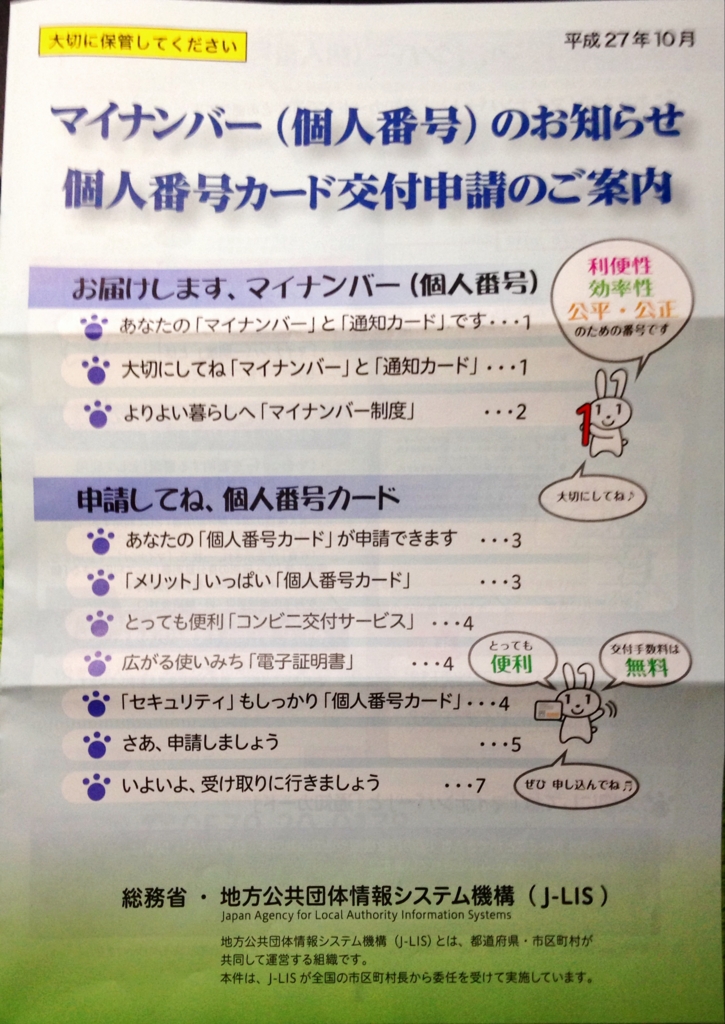 大切に保管してください
平成27年10月
マイナンバー(個人番号)のお知らせ
個人番号カード交付申請のご案内
お届けします、マイナンバー(個人番号)
あなたの「マイナンバー」と「通知カード」です・・・1
大切にしてね「マイナンバー」と「通知カード」・・・1
よりよい暮らしへ「マイナンバー制度」 ・・・2
利便性
効率性
公平・公正
のための番号です
1
大切にしてね♪
申請してね、個人番号カード
あなたの「個人番号カード」が申請できます ・・・3
「メリット」いっぱい「個人番号カード」 ・・・3
とっても便利「コンビニ交付サービス」 ・・・4
広がる使いみち「電子証明書」 ・・・4
「セキュリティ」もしっかり「個人番号カード」・・・4
さあ、申請しましょう ・・・5
いよいよ、受け取りに行きましょう ・・・7
とっても
便利
交付手数料は
無料
ぜひ 申し込んでね♫
総務省 ・ 地方公共団体情報システム機構 ( J-LIS )
Japan Agency for Local Authority Information Systems
地方公共団体情報システム機構 (J-LIS) とは、都道府県・市区町村が
共同して運営する組織です。
本件は、J-LIS が全国の市区町村長から委任を受けて実施しています。